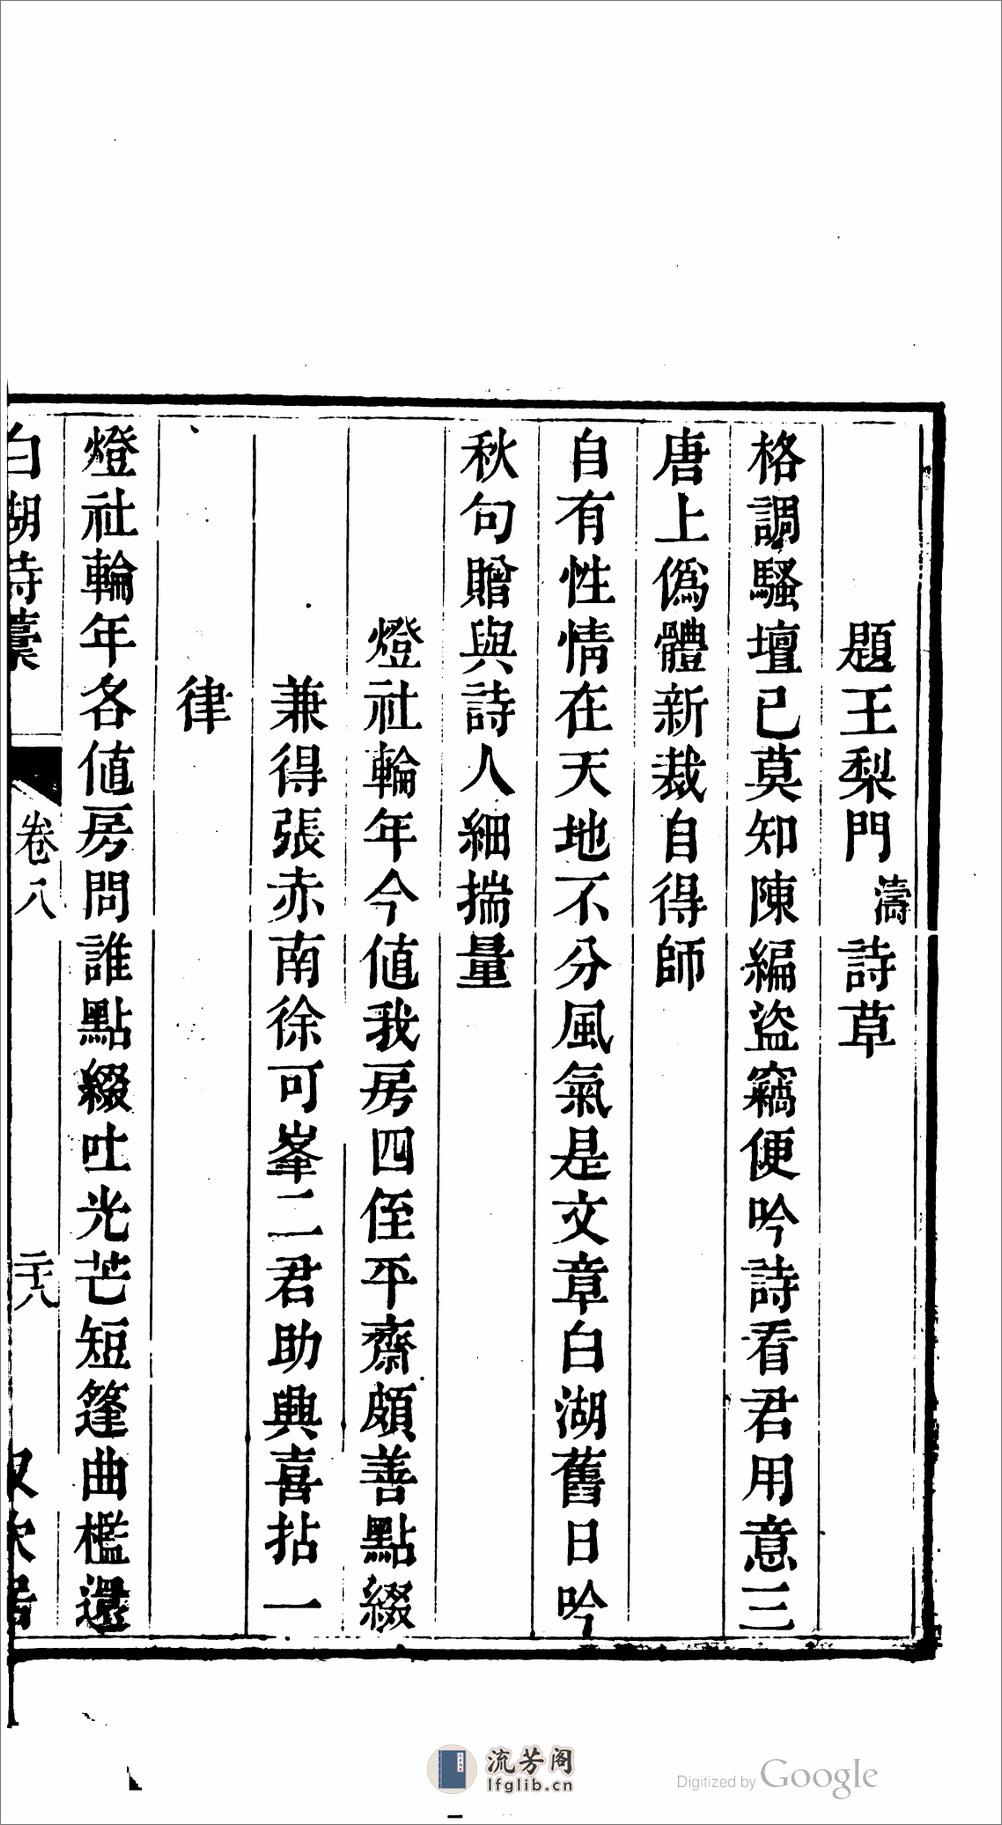 題王梨門濤詩草
格調騷壇已莫知陳編盜竊便吟詩看君用意三
唐上僞體新裁自得師
自有性情在天地不分風氣是文章白湖舊日吟
秋句贈與詩人細揣量
燈社輪年今値我房四侄平齋頗善點綴
兼得張赤南徐可峯二君助興喜拈一
律
燈社輪年各値房問誰點綴吐光芒短篷曲檻還
白湖詩藁
卷八
二十八
流芳阁
lfglib.cn
Digitized by Google